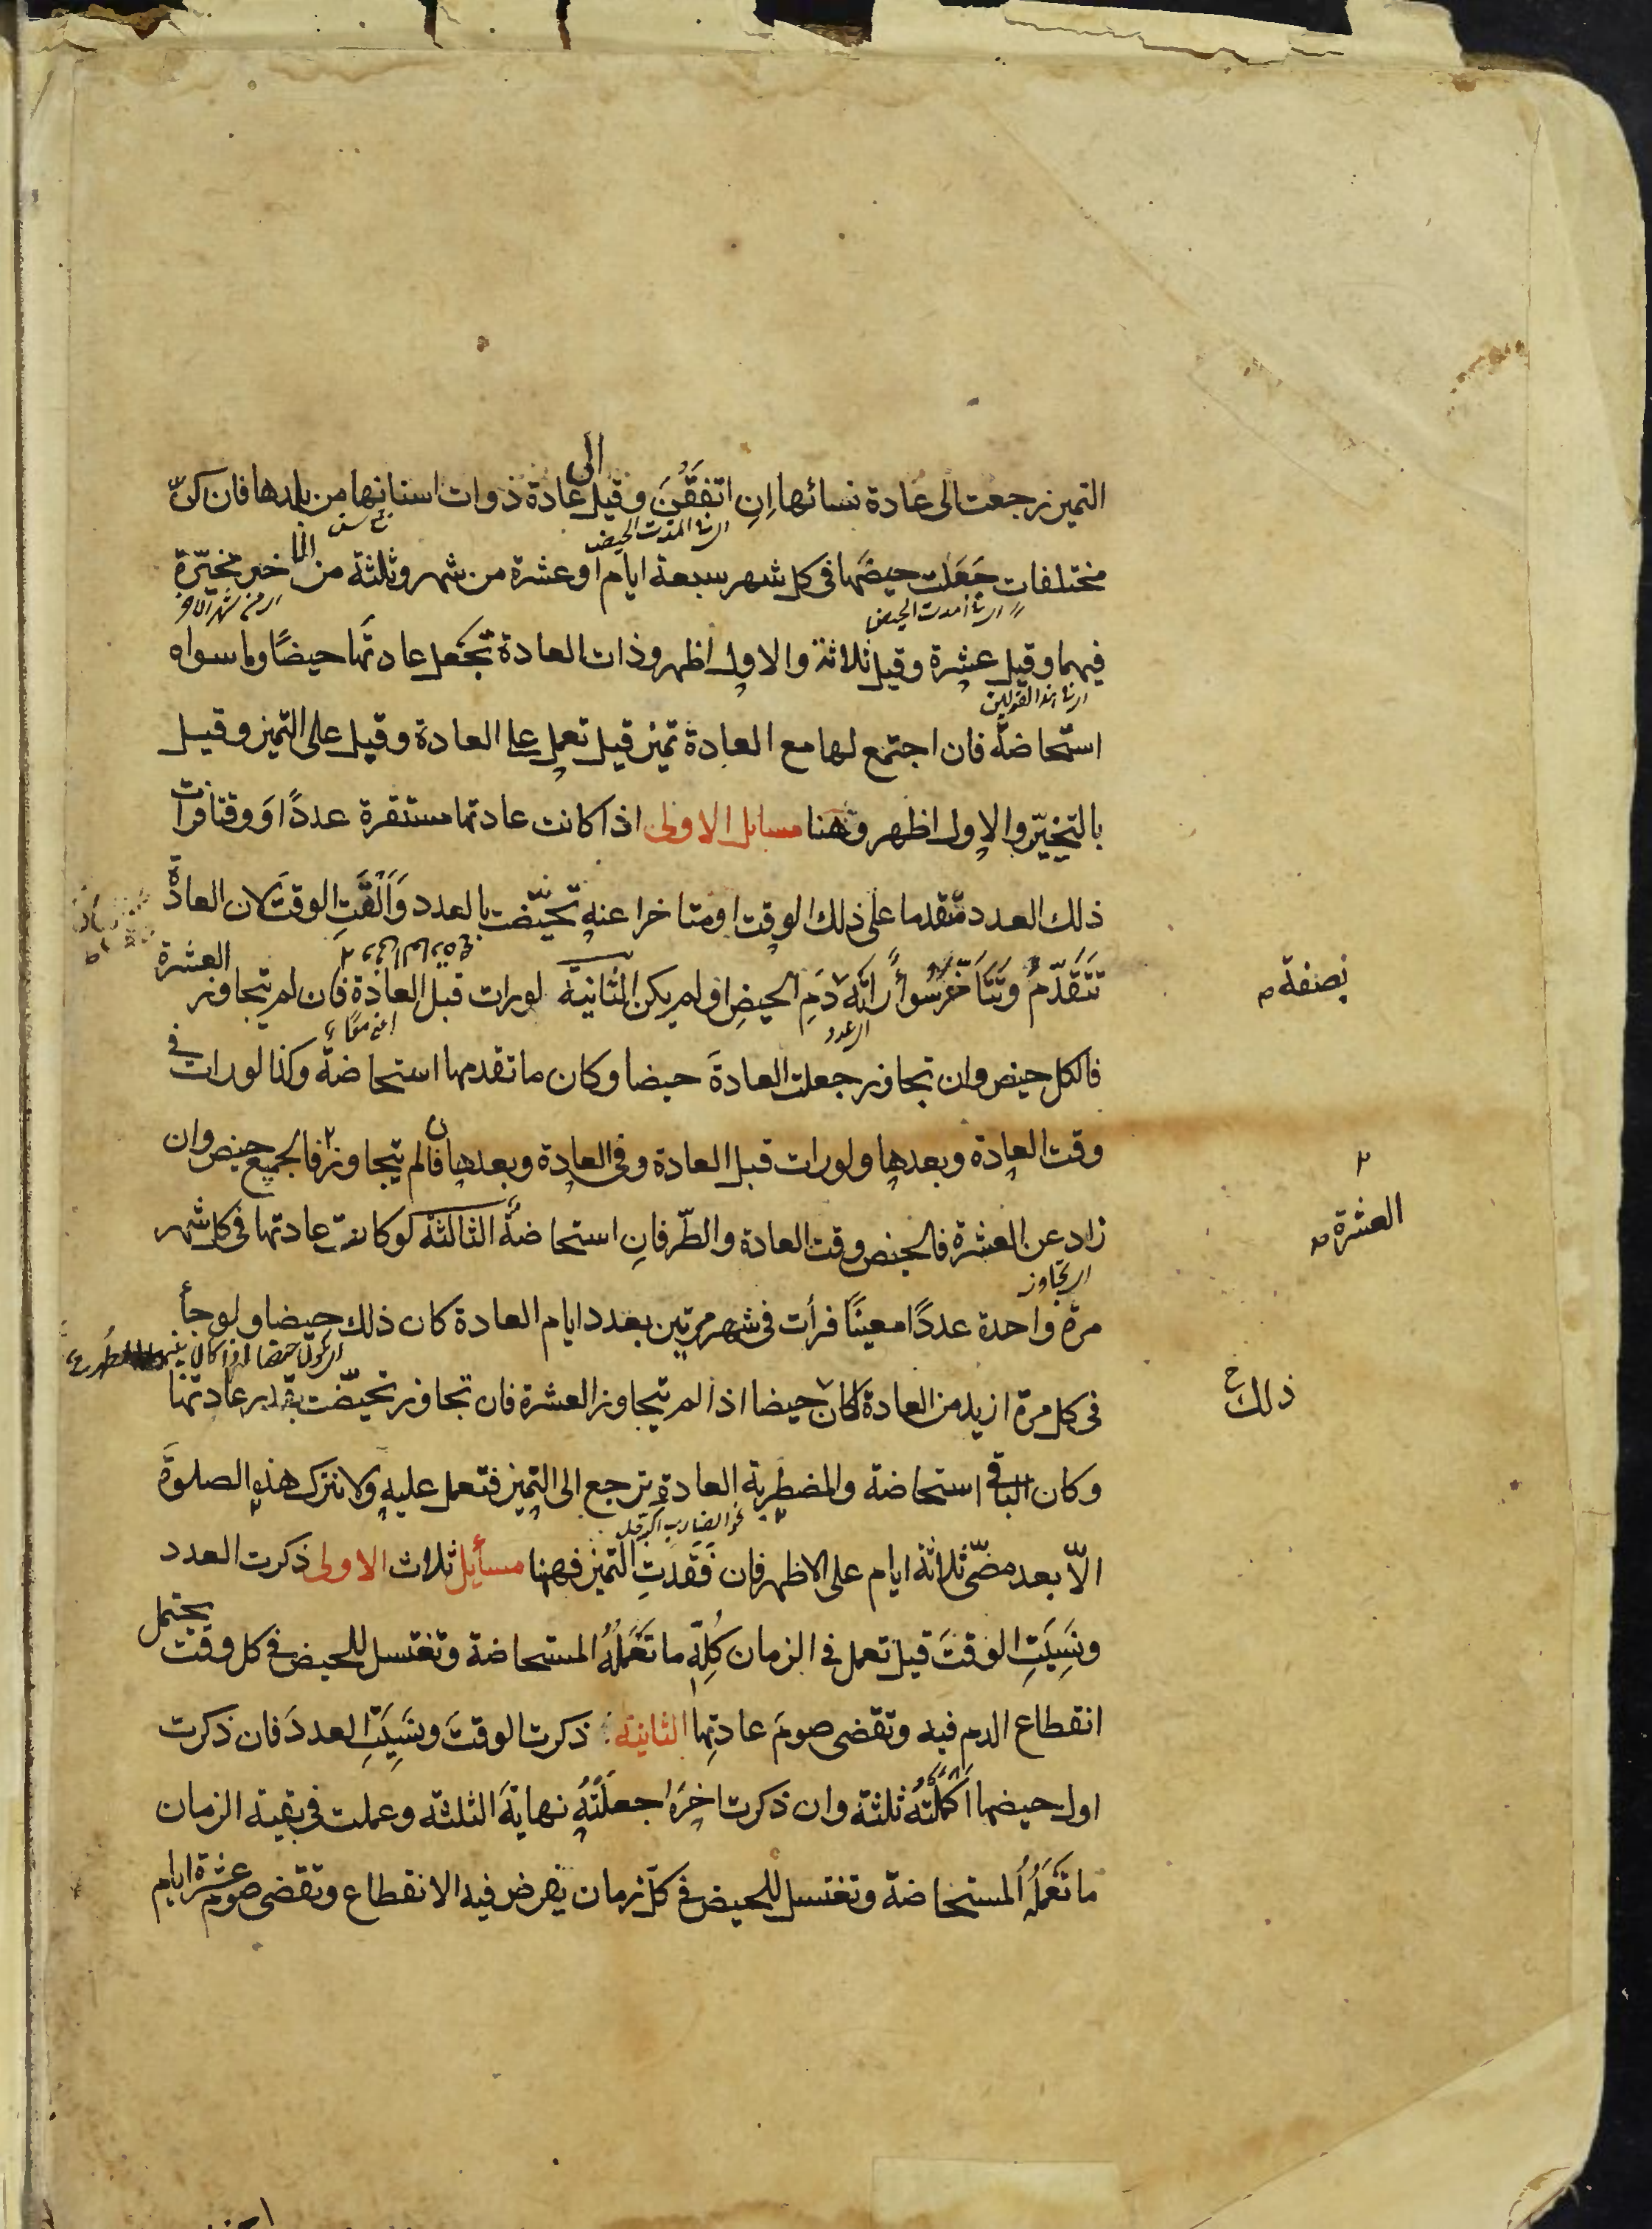 التميز رجعت الى عادة نسائها اِنِ اتفَقْنَ وقيل الى عادة ذوات اسنانها من بلدها فان كنّ
مختلفات جَعَلت حيضَها فى كل شهر سبعة ايام او عشرة من شهر وثلثة من اخر مخيّرة
فيهما وقيل عشرة وقيل ثلاثة والاول اظهر وذات العادة تجْعل عادتَها حيضًا وما سواه
استحاضة فان اجتمع لها مع العادة تميز قيل تعمل على العادة وقيل على التميز وقيل
بالتخيّر والاول اظهر وههنا مسايل الاولى اذا كانت عادتها مستقرة عددًا وَوقتا فرات
ذلك العدد متقدما على ذلك الوقت او متاخرا عنه تحيّضت بالعدد وَاَلْقَتِ الوقتَ لان العادة
تَتَقَدّمُ وَتَتَاَخّرُ سوأً رَاَتْه دَمِ الحيضِ او لم يكن الثانية لورات قبل العادة فان لم يتجاوز العشرة
بصفة
فالكل حيض وان تجاوز جعلت العادةَ حيضا وكان ما تقدمها استحاضة وكذا لورات فى
وقت العادة وبعدها ولورات قبل العادة وفى العادة وبعدها فان لم يتجاوز فالجميع حيض وان
العشرة
زاد عن العشرة فالحيض وقت العادة والطّرفانِ استحاضةً الثالثة لو كانت عادتها فى كل شهر
اى تجاوز
مرة واحدة عددًا معينًا فرأت فى شهر مرتين بعدد ايام العادة كان ذلك حيضا ولو جأ
فى كل مرة ازيد من العادة لكان حيضا اذا لم يتجاوز العشرة فان تجاوز تحيّضت بقدر عادتها
ذلك
وكان الباقى استحاضة والمضطربة العادةِ ترجع الى التميز فتعمل عليه ولا تترك هذه الصلوةَ
الّا بعد مضّى ثلاثة ايام على الاظهر فان فَقَدَتِ التميز فههنا مسأيل ثلاث الاولى ذكرت العدد
ونَسِيَتِ الوقتَ قيل تعمل فى الزمان كُلِّهِ ما تَعْمَلُهُ المستحاضة وتغتسل للحيض فى كل وقت يحتمل
انقطاع الدم فيه وتقضى صومَ عادتِها الثانية ذكرت الوقتَ ونَسِيَتِ العددَ فان ذكرت
اول حيضها اَكْمَلَتْهُ ثلثة وان ذكرت اخرَه جعلَتْهُ نهايةَ الثلثة وعملت فى بقية الزمان
ما تَعْمَلُه المستحاضة وتغتسل للحيض فى كلّ زمان يفرض فيه الانقطاع وتقضى صوم عشرة ايام